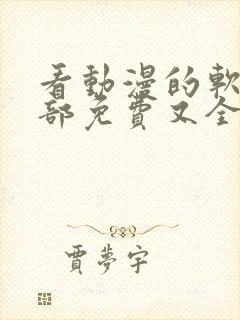 看動漫的軟
部免費又全
賈夢宇